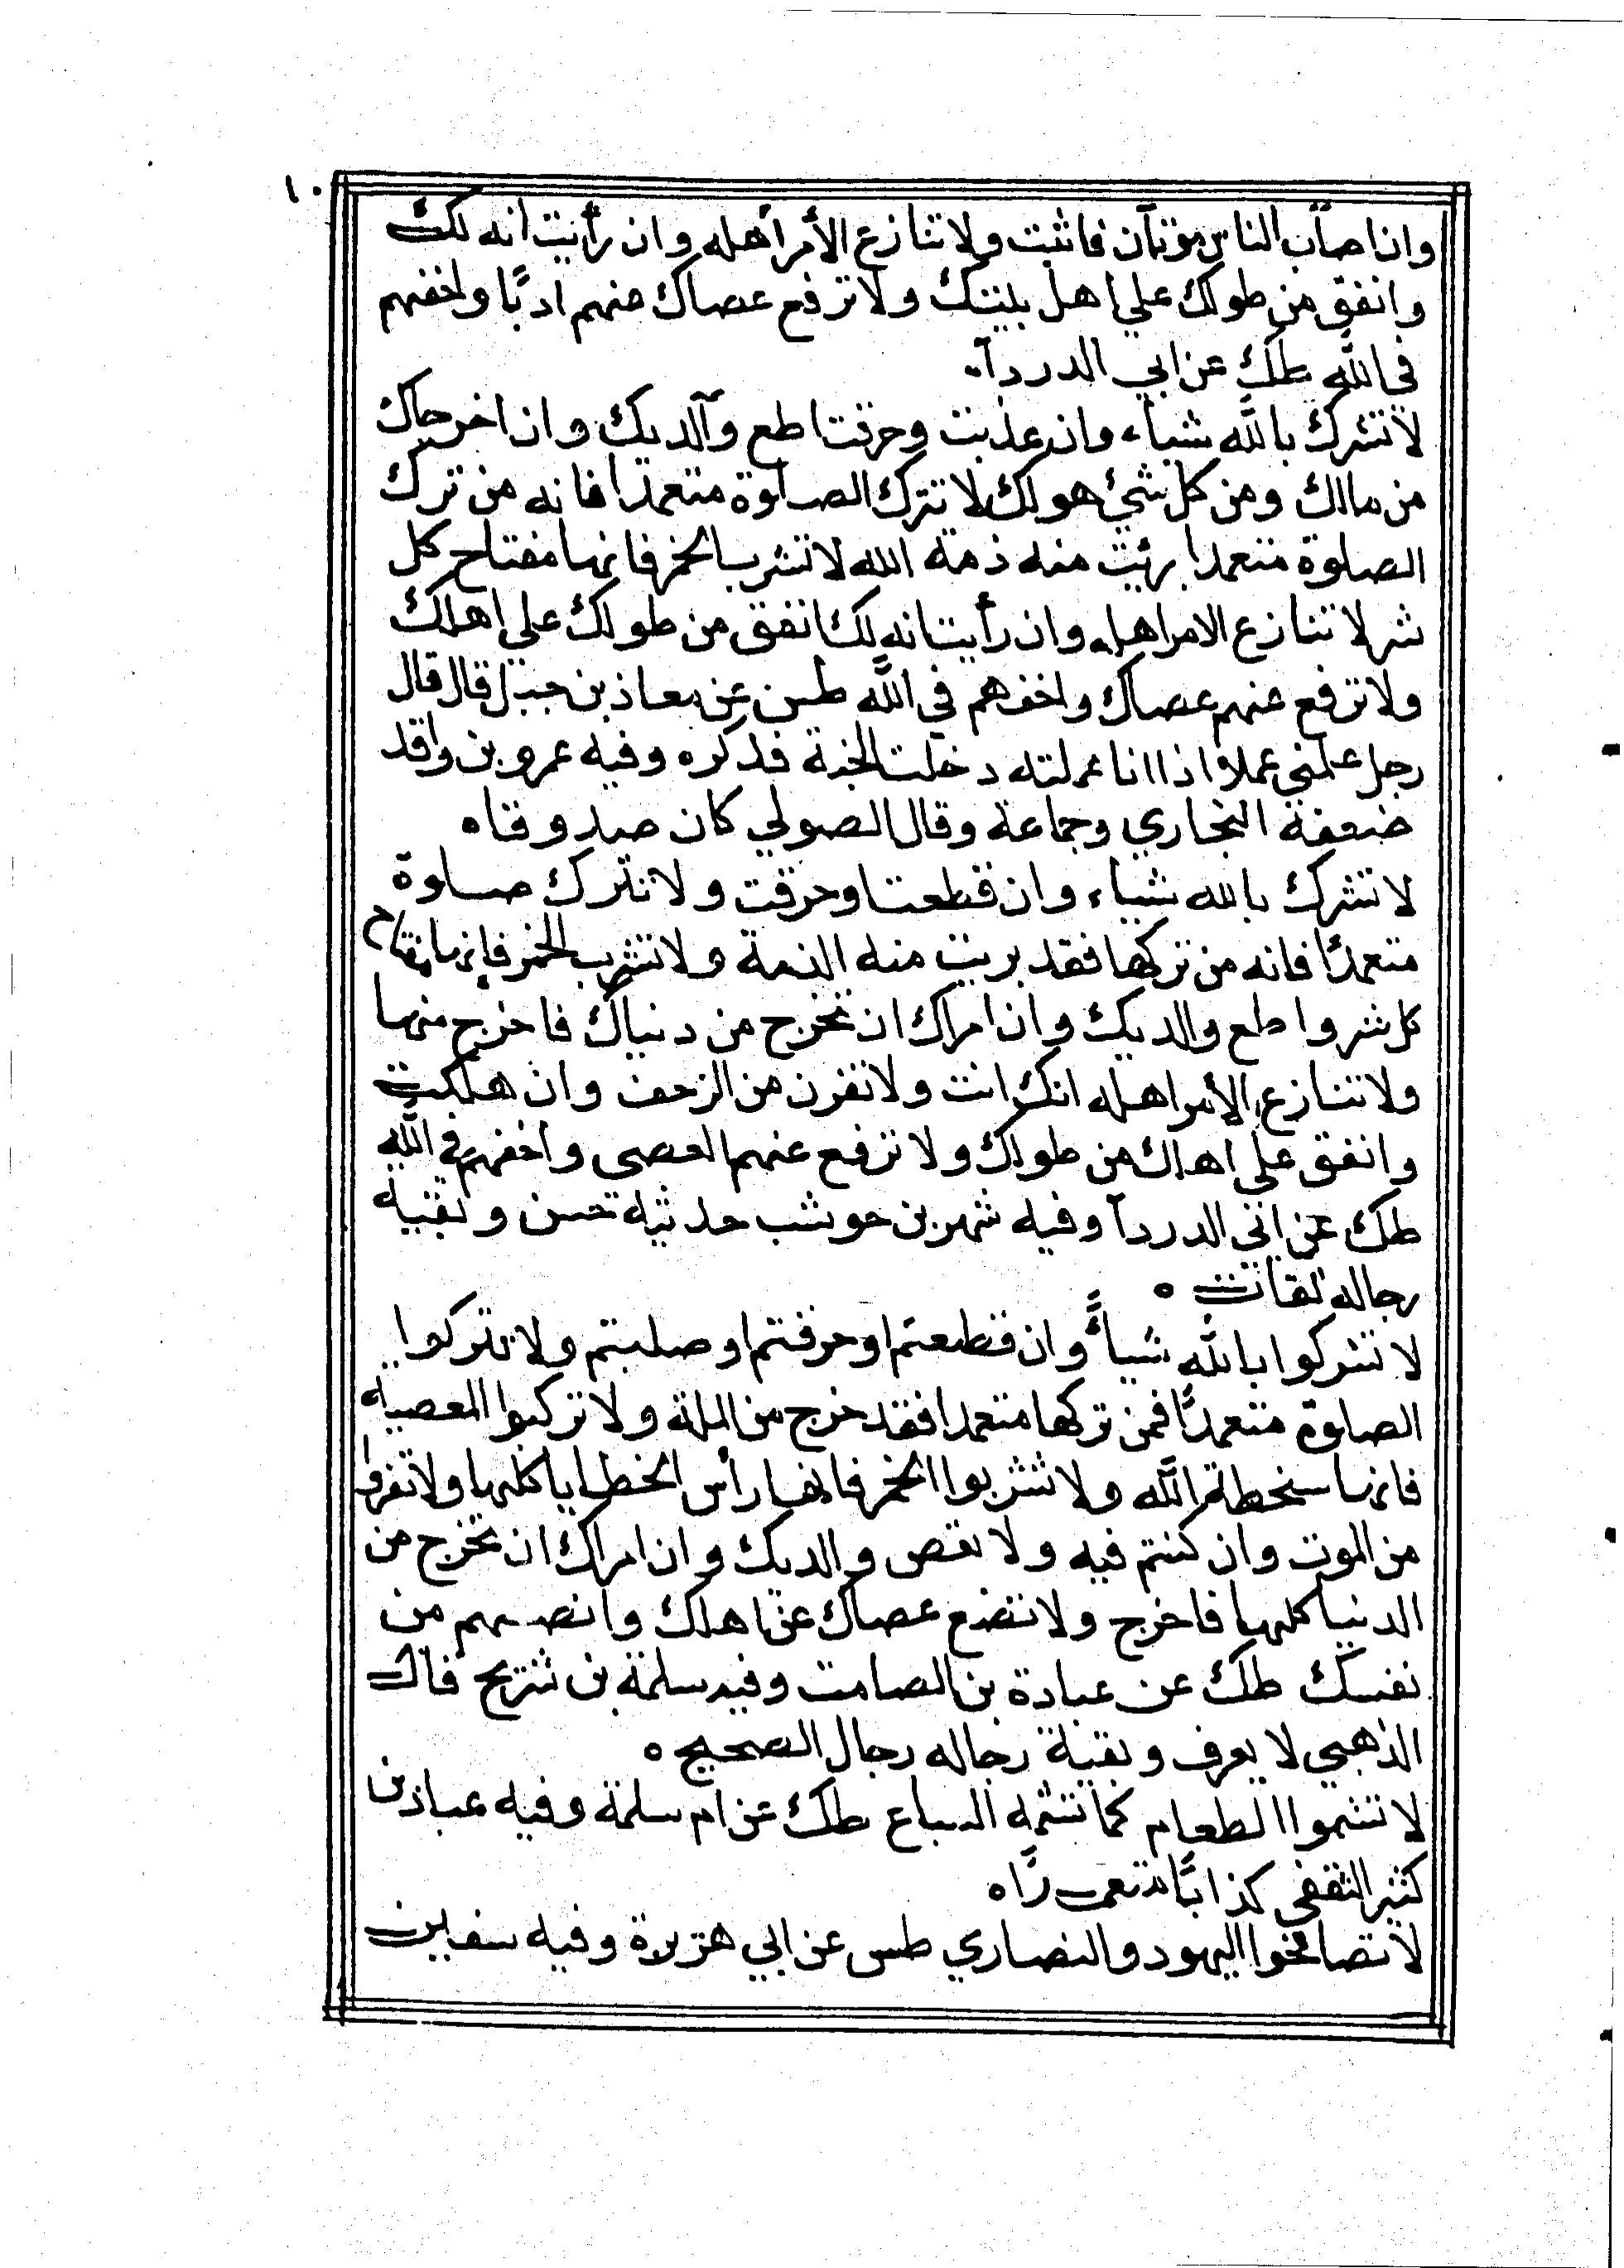 ١٠
وان اصاب الناس موتان فاثبت ولا تنازع الأمر أهله وان رأيت انه لك
وانفق من طولك علي اهل بيتك ولا ترفع عصاك عنهم ادبًا واخفهم
في الله طك عن ابي الدردآ.
لا تشرك بالله شياء وان عذبت وحرقت اطع وآلديك وان اخرجاك
من مالك ومن كل شئ هو لك لا تترك الصلوة متعمدا فانه من ترك
الصلوة متعمدا برئت منه ذمة الله لا تشرب الخمر فانها مفتاح كل
شر لا تنازع الامر اهله وان رأيت انه لك انفق من طولك علي اهلك
ولا ترفع عنهم عصاك واخفهم في الله طس عن معاذ بن جبل قال قال
رجل علمني عملا اذا انا عملته دخلت الجنة فذكره وفيه عمرو بن واقد
ضعفه البخاري وجماعة وقال الصولي كان صدوقا ه
لا تشرك بالله شياء وان قطعت او حرقت ولا تترك صلوة
متعمدًا فانه من تركها فقد بريت منه الذمة ولا تشرب الخمر فانها مفتاح
كل شر واطع والديك وان امراك ان تخرج من دنياك فاخرج منها
ولا تنازع الأمر اهله انك انت ولا تفرن من الزحف وان هلكت
وانفق علي اهلك من طولك ولا ترفع عنهم العصى واخفهم في الله
طك عن ابي الدردآ وفيه شهر بن حوشب حديثه حسن وبقية
رجاله ثقات ه
لا تشركوا بالله شيأً وان قطعتم او حرقتم او صلبتم ولا تتركوا
الصلوة متعمدًا فمن تركها متعمدا فقد خرج من الملة ولا تركبوا المعصية
فانها سخطة الله ولا تشربوا الخمر فانها رأس الخطايا كلها ولا تفروا
من الموت وان كنتم فيه ولا تعص والديك وان امراك ان تخرج من
الدنيا كلها فاخرج ولا تضع عصاك عن اهلك وانصفهم من
نفسك طك عن عبادة بن الصامت وفيه سلمة بن شريح قال
الذهبي لا يعرف وبقية رجاله رجال الصحيح ه
لا تشموا الطعام كما تشمه السباع طك عن ام سلمة وفيه عباد بن
كثير الثقفي كذابًا متعمدًا ه
لا تصافحوا اليهود والنصاري طس عن ابي هريرة وفيه سفين